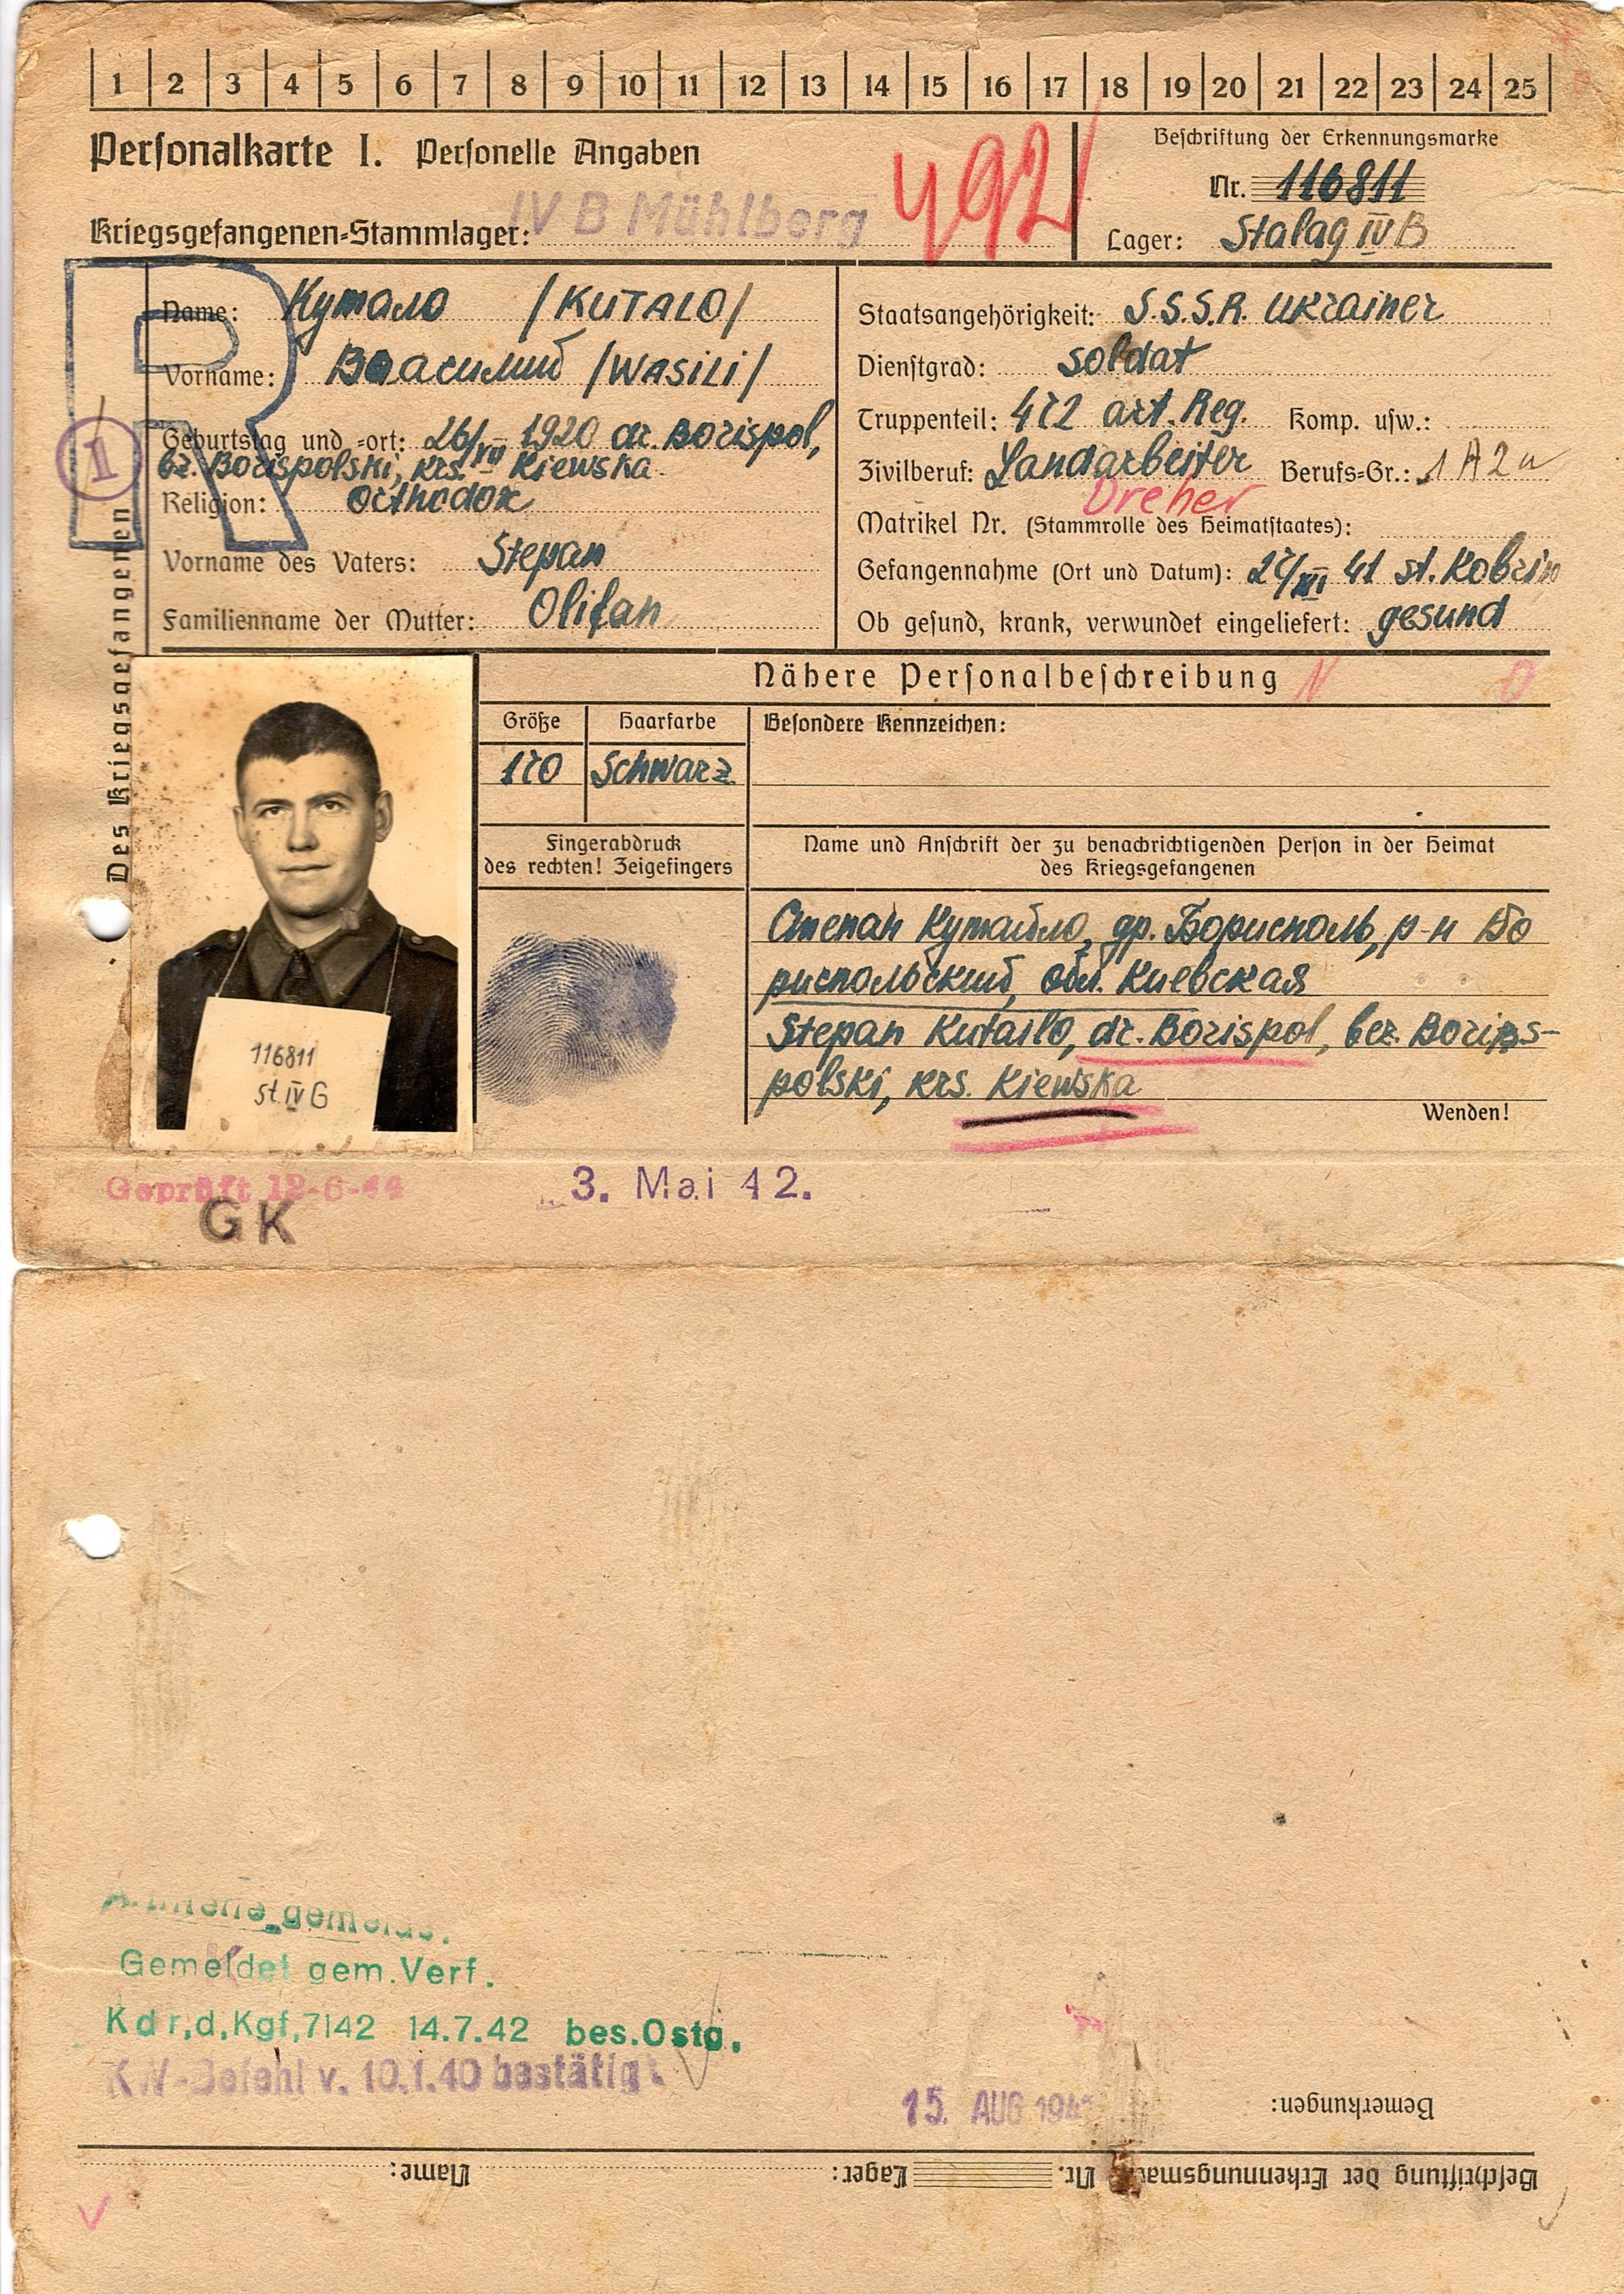 1 2 3 4 5 6 7 8 9 10 11 12 13 14 15 16 17 18 19 20 21 22 23 24 25
Personalkarte I. Personelle Angaben
Kriegsgefangenen-Stammlager: IV B Mühlberg
492
Beschriftung der Erkennungsmarke
Nr. 116811
Lager: Stalag IV B
R
1
Des Kriegsgefangenen
Name: Кутало /KUTALO/
Vorname: Василий /WASILI/
Geburtstag und -ort: 26/VII 1920 dr. Borispol,
bz. Borispolski, krs. Kiewska
Religion: Orthodox
Vorname des Vaters: Stepan
Familienname der Mutter: Olifan
Staatsangehörigkeit: S.S.S.R. Ukrainer
Dienstgrad: Soldat
Truppenteil: 472 art. Reg. Komp. usw.:
Zivilberuf: Landarbeiter Berufs-Gr.: 1 A 2 u
Dreher
Matrikel Nr. (Stammrolle des Heimatstaates):
Gefangennahme (Ort und Datum): 27/XI 41 st. Kobrin
Ob gesund, krank, verwundet eingeliefert: gesund
Nähere Personalbeschreibung N O
Größe Haarfarbe Besondere Kennzeichen:
170 Schwarz
Fingerabdruck
des rechten! Zeigefingers
Name und Anschrift der zu benachrichtigenden Person in der Heimat
des Kriegsgefangenen
Степан Кутайло, др. Борисполь, р-н Бо
риспольский, обл. Киевская
Stepan Kutailo, dr. Borispol, bez. Boris-
polski, krs. Kiewska
Wenden!
116811
St. IV G
Geprüft 12-6-44
GK
3. Mai 42.
gemeld.
Gemeldet gem. Verf.
Kdr,d,Kgf,7142 14.7.42 bes.Ostg.
KW-Befehl v. 10.1.40 bestätigt
15. AUG 194
Bemerkungen:
Beschriftung der Erkennungsmarke Nr. Lager: Name: